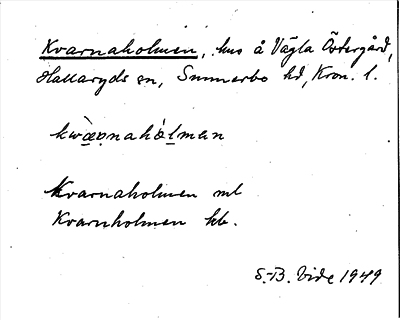 Kvarnaholmen, hus å Vägla Östergård,
Hallaryds sn, Sunnerbo hd, Kron. l.
kwæ̀ṇnahɷ́lmən
Kvarnaholmen ml
Kvarnholmen kb.
S.-B. Vide 1949